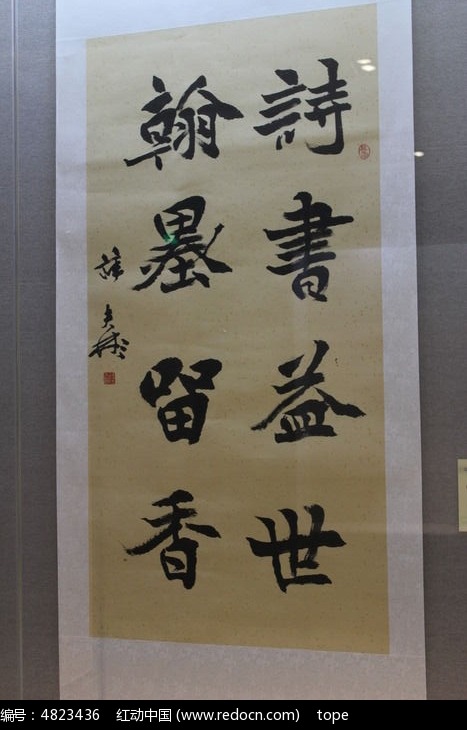 詩書益世
翰墨留香
编号：4823436 红动中国 (www.redocn.com) tope